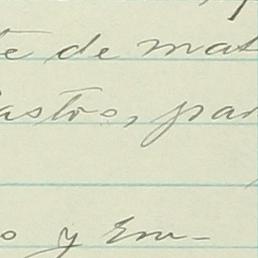 te de mat
astos, par
o y Em-